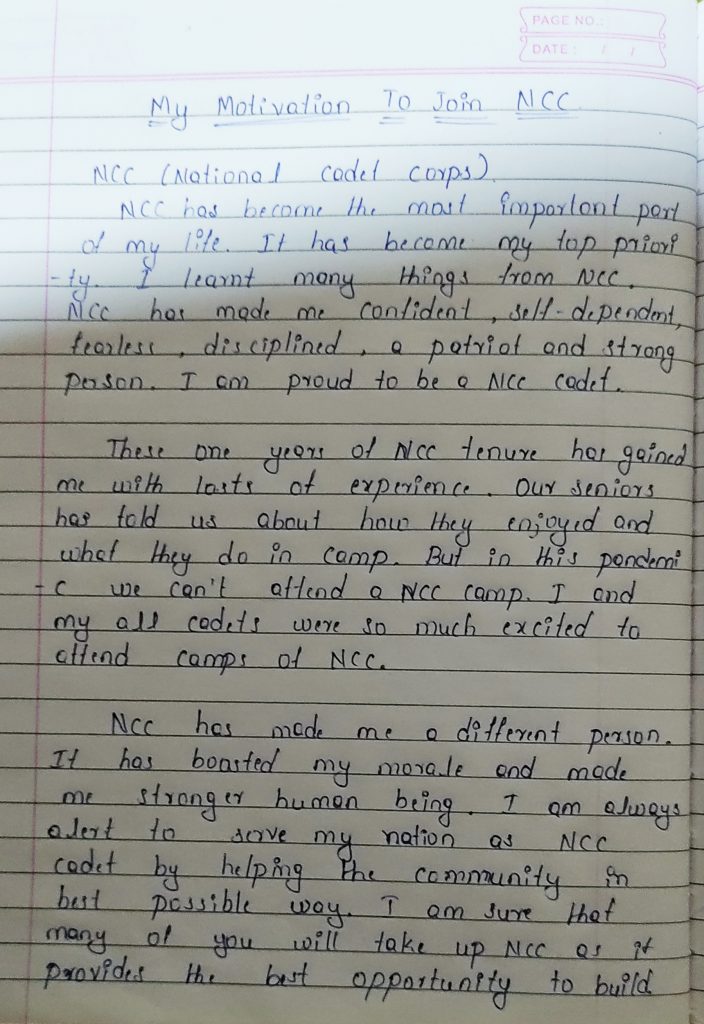 PAGE NO.:
DATE: / /
My Motivation To Join NCC
NCC (National cadet corps).
NCC has become the most important part
of my life. It has become my top priori
-ty. I learnt many things from NCC.
NCC has made me confident, self-dependent,
fearless, disciplined, a patriot and strong
person. I am proud to be a NCC cadet.
These one years of NCC tenure has gained
me with losts of experience. Our seniors
has told us about how they enjoyed and
what they do in camp. But in this pandemi
-c we can't attend a NCC camp. I and
my all cadets were so much excited to
attend camps of NCC.
NCC has made me a different person.
It has boosted my morale and made
me stronger human being. I am always
alert to serve my nation as NCC
cadet by helping the community in
best possible way. I am sure that
many of you will take up NCC as it
provides the best opportunity to build